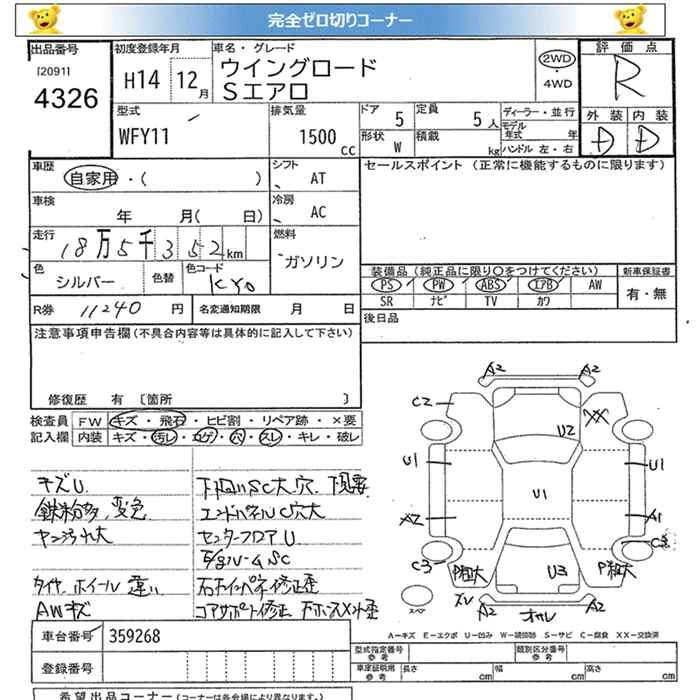 完全ゼロ切りコーナー
出品番号 初度登録年月 車名・グレード 評価点
[2091] 4326
H14 12月
ウイングロード
Sエアロ
2WD ・ 4WD
R
型式 排気量 ドア 定員 ディーラー・並行 外装 内装
WFY11 1500cc 5 5人
モデル年式 年
形状 W 積載 kg ハンドル 左・右
D D
車歴 シフト セールスポイント (正常に機能するものに限ります)
自家用・( ) AT
車検 冷房
年 月( 日) AC
走行 燃料
18万5千352km ガソリン
色 シルバー 色替 色コード KY0
装備品 (純正品に限り〇をつけてください) 新車保証書
PS PW ABS エアB AW 有・無
SR ナビ TV カワ
R券 11240円 名変通知期限 月 日
後日品
注意事項申告欄 (不具合内容等は具体的に記入して下さい)
修復歴 有 〔箇所 〕
検査員 FW キズ・飛石・ヒビ割・リペア跡・×要
記入欄 内装 キズ・汚レ・コゲ・穴・スレ・キレ・破レ
キズU 下回りSC大.穴.
鉄粉多.変色 エンドパネルC穴大
ヤニ汚れ大 センターフロアU
タイヤ.ホイール違い
AWキズ コアサポート修正
A2 A2
C2 XX
U2
U1 U1 U1
X2 A1
C3 C3
P粗大 U3 P粗大
A2 A2
スペア
A-キズ E-エクボ U-凹み W-現修跡 S-サビ C-腐食 XX-交換済
車台番号 359268
型式指定番号 参考 類別区分番号 参考
登録番号
車庫証明用 参考 長さ cm 幅 cm 高さ cm
希望出品コーナー (コーナーは各会場により異なります。)